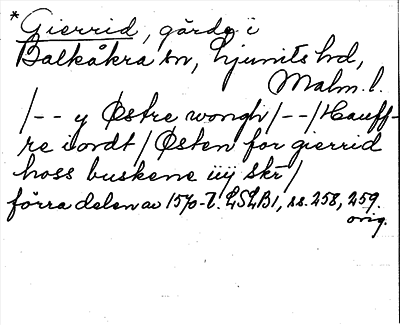 *Gierrid, gärde i
Balkåkra sn, Ljunits hd,
Malm. l.
/-- y Østre wongh/--/Hauff-
re i ordt/Østen for gierrid
hoss buskene iiij skr/
förra delen av 1570-t. LSLB1, ss. 258, 259.
orig.